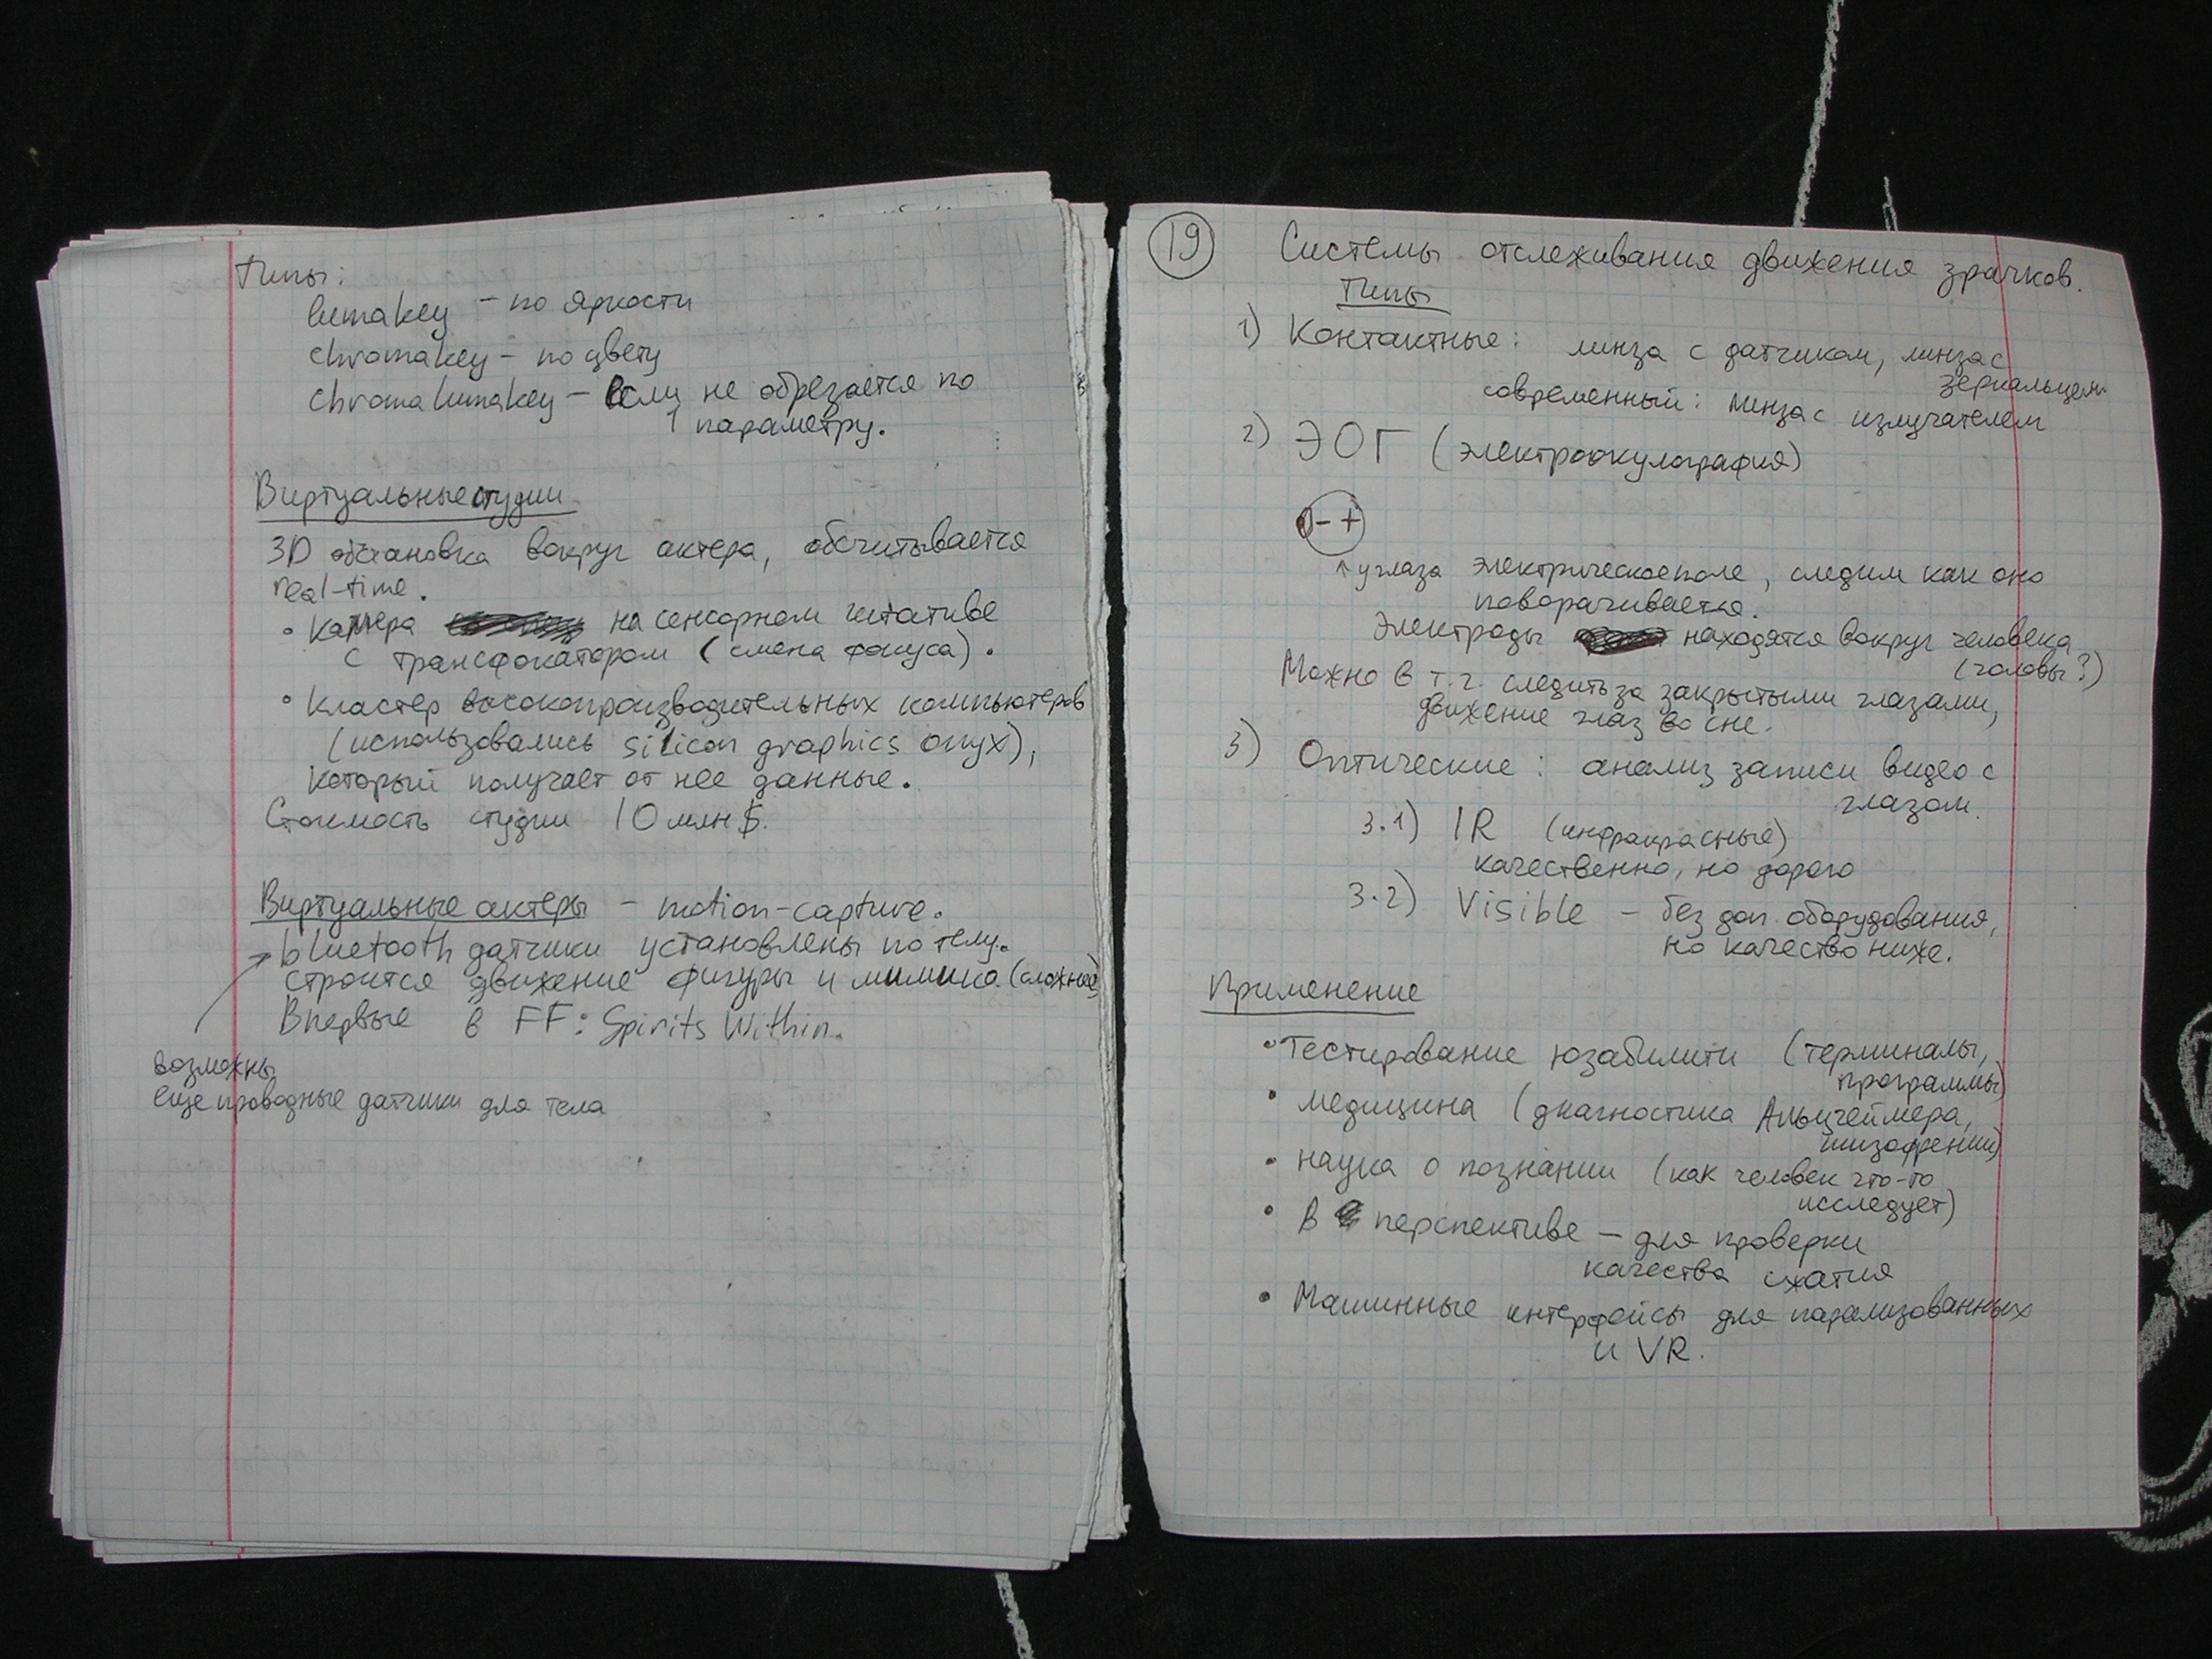 Типы:
lumakey – по яркости
chromakey – по цвету
chromalumakey – если не обрезается по
1 параметру.
Виртуальные студии
3D обстановка вокруг актера, обсчитывается
real-time.
• Камера на сенсорном штативе
с трансфокатором (смена фокуса).
• Кластер высокопроизводительных компьютеров
(использовались silicon graphics onyx),
который получает от нее данные.
Стоимость студии 10 млн $.
Виртуальные актеры – motion-capture.
bluetooth датчики установлены по телу.
строится движение фигуры и мимика (сложнее)
Впервые в FF: Spirits Within.
возможны
еще проводные датчики для тела
19 Системы отслеживания движения зрачков.
Типы
1) Контактные: линза с датчиком, линза с
зеркальцем
современный: линза с излучателем
2) ЭОГ (электроокулография)
- +
↑ у глаза электрическое поле, следим как оно
поворачивается.
Электроды находятся вокруг человека
(головы?)
Можно в т.ч. следить за закрытыми глазами,
движение глаз во сне.
3) Оптические: анализ записи видео с
глазом.
3.1) IR (инфракрасные)
качественно, но дорого
3.2) Visible – без доп оборудования,
но качество ниже.
Применение
• Тестирование юзабилити (терминалы,
программы)
• медицина (диагностика Альцгеймера,
шизофрении)
• наука о познании (как человек что-то
исследует)
• В перспективе – для проверки
качества сжатия
• Машинные интерфейсы для парализованных
и VR.